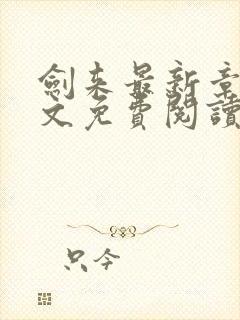 劍来最新章
文免費閱讀
只今